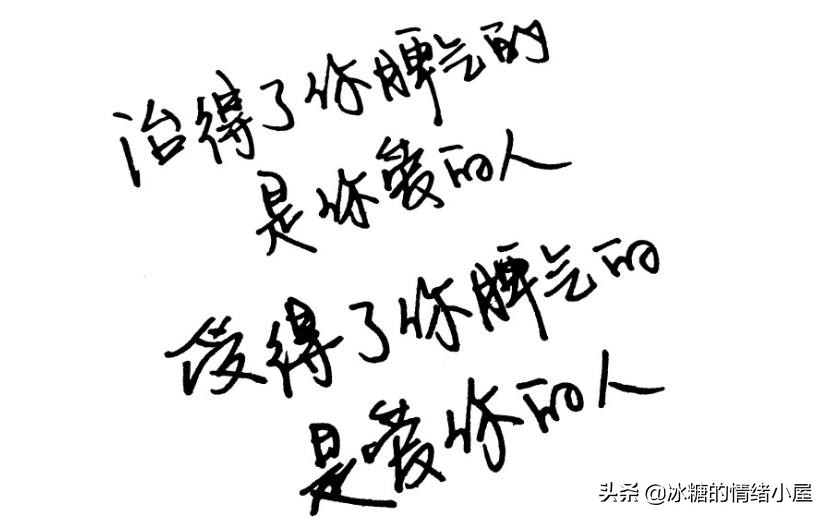 治得了你脾气的
是你爱的人
受得了你脾气的
是爱你的人
头条 @冰糖的情绪小屋